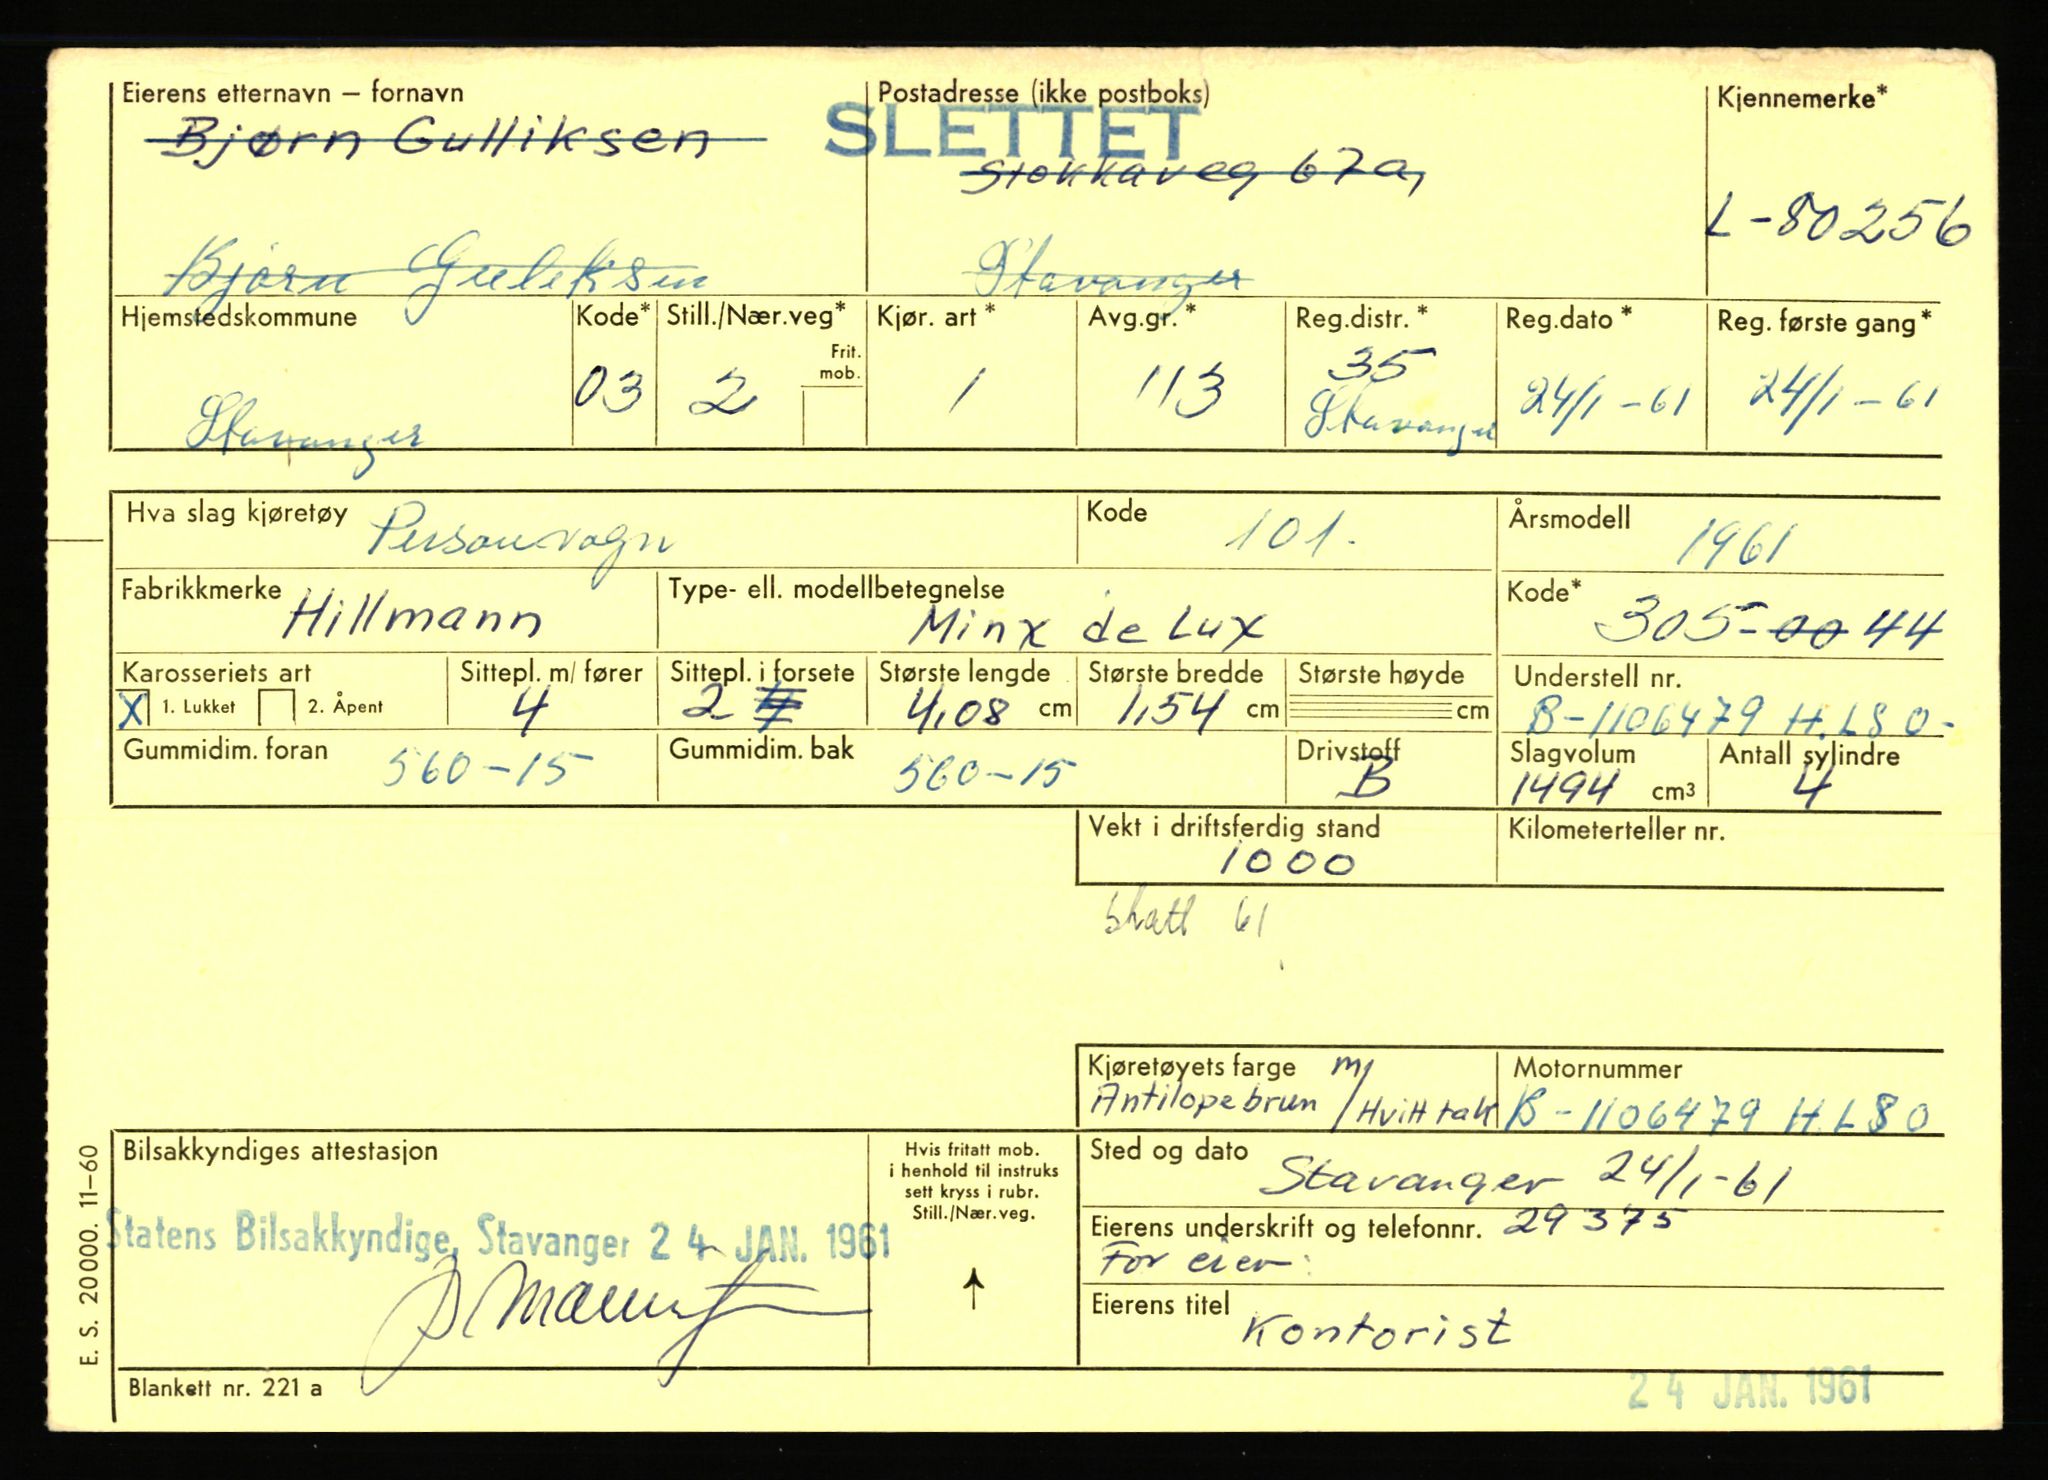 Eierens etternavn – fornavn
Bjørn Gulliksen
Bjørn Guliksen
Postadresse (ikke postboks)
SLETTET
Stokkaveg 67a,
Stavanger
Kjennemerke*
L-80256
Hjemstedskommune
Stavanger
Kode*
03
Still./Nær.veg*
2
Frit.
mob.
Kjør. art*
1
Avg.gr.*
113
Reg.distr.*
35
Stavanger
Reg.dato*
24/1-61
Reg. første gang*
24/1-61
Hva slag kjøretøy
Personvogn
Kode
101.
Årsmodell
1961
Fabrikkmerke
Hillmann
Type- ell. modellbetegnelse
Minx de Lux
Kode*
305-00 44
Karosseriets art
X 1. Lukket 2. Åpent
Sittepl. m/ fører
4
Sittepl. i forsete
2
Største lengde
4,08 cm
Største bredde
1,54 cm
Største høyde
cm
Understell nr.
B-1106479 H.L80-
Gummidim. foran
560-15
Gummidim. bak
560-15
Drivstoff
B
Slagvolum
1494 cm³
Antall sylindre
4
Vekt i driftsferdig stand
1000
Kilometerteller nr.
skatt 61
Kjøretøyets farge m/
Antilopebrun / Hvitt tak
Motornummer
B-1106479 H.L80
Bilsakkyndiges attestasjon
Statens Bilsakkyndige, Stavanger 24 JAN. 1961
Hvis fritatt mob.
i henhold til instruks
sett kryss i rubr.
Still./Nær.veg.
Sted og dato
Stavanger 24/1-61
Eierens underskrift og telefonnr. 29375
For eier:
Eierens titel
Kontorist
E. S. 20000. 11-60
Blankett nr. 221 a
24 JAN. 1961